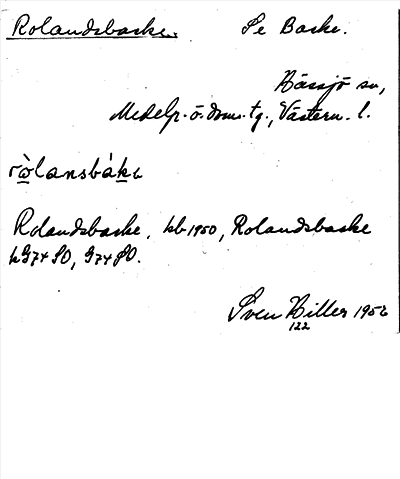 Rolandsbacke. Se Backe.
Hässjö sn,
Medelp. ö. dom. tg., Västern. l.
ròlansbák
Rolandsbacke, kb 1950, Rolandsbacke
k G74 SO, G74 SO.
Sven Hiller 1956
122